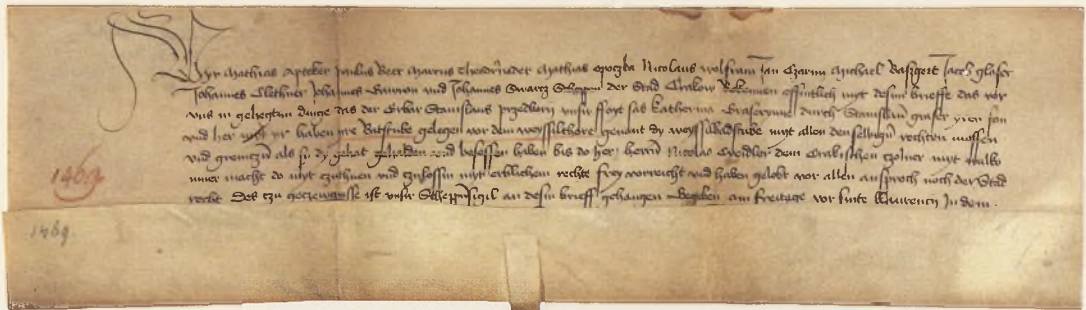 Wyr Mathias Apteker Paulus Beer Marcus Mathias Opoczka Nicolaus Wolfram Jan Czarni Michael Baszgert Jacob glaser
Johannes Clethner Johannes Gawron und Johannes Swartz Scheppen der Stad Crakow Bekennen offintlich myt desim brieffe das vor
uns in gehegtim dinge das der Erbar Stanislaus przedborn unsir ffoyt sas Katherina Graserynne durch Stanislaum graser yren son
und her myt yr haben ire Batstube gelegen vor dem weyssilthore genant dy weyssilbadstube myt allen denselbigin rechten
und grenitzin als sy dy gehat gehalden und besessen haben bis do her herrn Nicolao Creidler dem Crakischen czolner myt
macht do myt czuthuen und czulossin myt erblichem rechte frey vorreicht und haben gelobt vor allen ansproch noch der Stad
recht Des czu geczewgnisse ist unsir Scheppinsigil an desin brieff gehangen Gegeben am freitage vor sinte Lawrencij In dem
1469
1469.